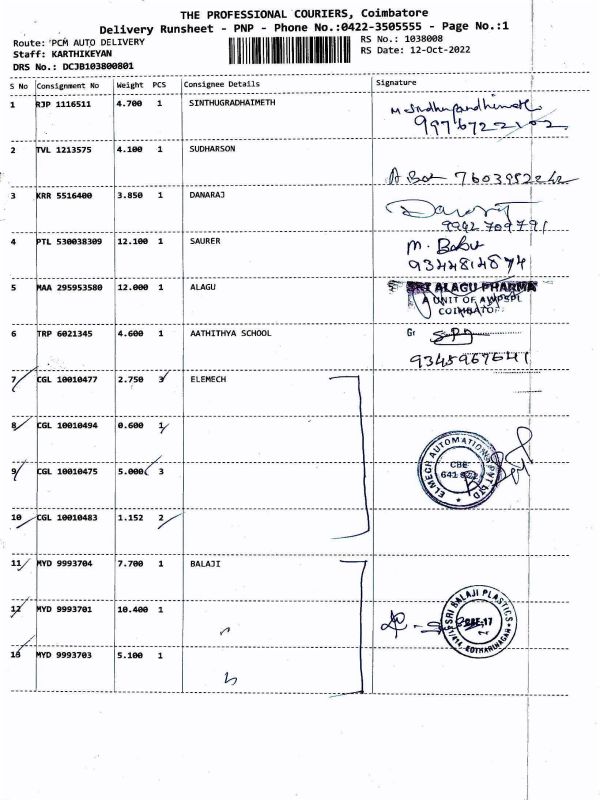 THE PROFESSIONAL COURIERS, Coimbatore
Delivery Runsheet - PNP - Phone No.:0422-3505555 - Page No.:1
Route: PCM AUTO DELIVERY
RS No.: 1038008
Staff: KARTHIKEYAN
RS Date: 12-Oct-2022
DRS No.: DCJB103800801
S No Consignment No Weight PCS Consignee Details Signature
1 RJP 1116511 4.700 1 SINTHUGRADHAIMETH
2 TVL 1213575 4.100 1 SUDHARSON
A 7603952242
3 KRR 5516400 3.850 1 DANARAJ
Danaraj
9942 709791
4 PTL 530038309 12.100 1 SAURER M. Babu
9344814874
5 MAA 295953580 12.000 1 ALAGU SRI ALAGU PHARMA
A UNIT OF AWPSPL
COIMBATOR
6 TRP 6021345 4.600 1 AATHITHYA SCHOOL
9345967641
7 CGL 10010477 2.750 3 ELEMECH
8 CGL 10010494 0.600 1
9 CGL 10010475 5.000 3
ELMECH AUTOMATIONS PVT LTD
CBE
10 CGL 10010483 1.152 2
11 MYD 9993704 7.700 1 BALAJI
12 MYD 9993701 10.400 1
SRI BALAJI PLASTICS
CBE-17
KOTHARI NAGAR
13 MYD 9993703 5.100 1